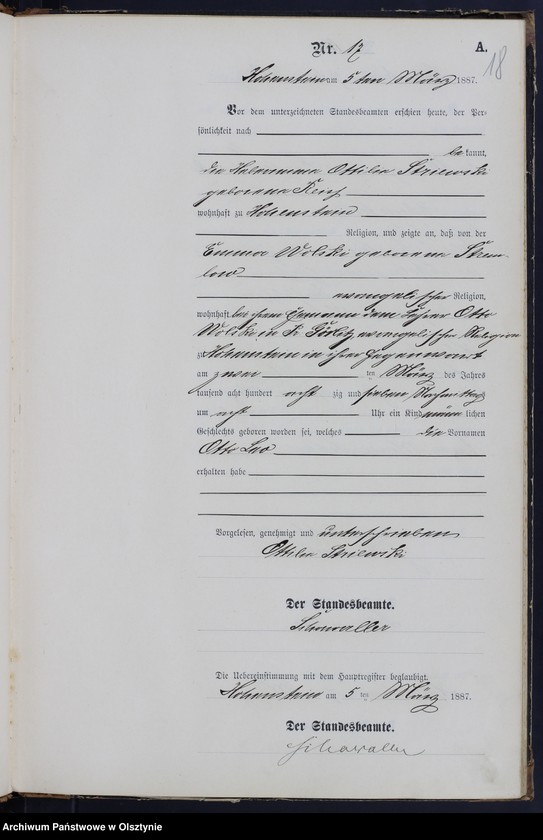 Nr. 17
A.
18
Hohenstein am 5ten März 1887.
Vor dem unterzeichneten Standesbeamten erschien heute, der Per-
sönlichkeit nach
be kannt,
die Hebamme Ottilie Striewski
geborene
wohnhaft zu Hohenstein
Religion, und zeigte an, daß von der
Emma Wolski geborene Strem-
low
evangelischer Religion,
wohnhaft bei ihrem Ehemann dem Otto
Wolski in Kl Görlitz evangelischer Religion
zu Hohenstein in ihrer Gegenwart
am zwei ten März des Jahres
tausend acht hundert acht zig und sieben Nachmittags
um acht Uhr ein Kind männlichen
Geschlechts geboren worden sei, welches die Vornamen
Otto Leo
erhalten habe
Vorgelesen, genehmigt und unterschrieben
Ottilie Striewski
Der Standesbeamte.
Schawaller
Die Uebereinstimmung mit dem Hauptregister beglaubigt.
Hohenstein am 5 ten März 1887.
Der Standesbeamte.
Schawaller
Archiwum Państwowe w Olsztynie